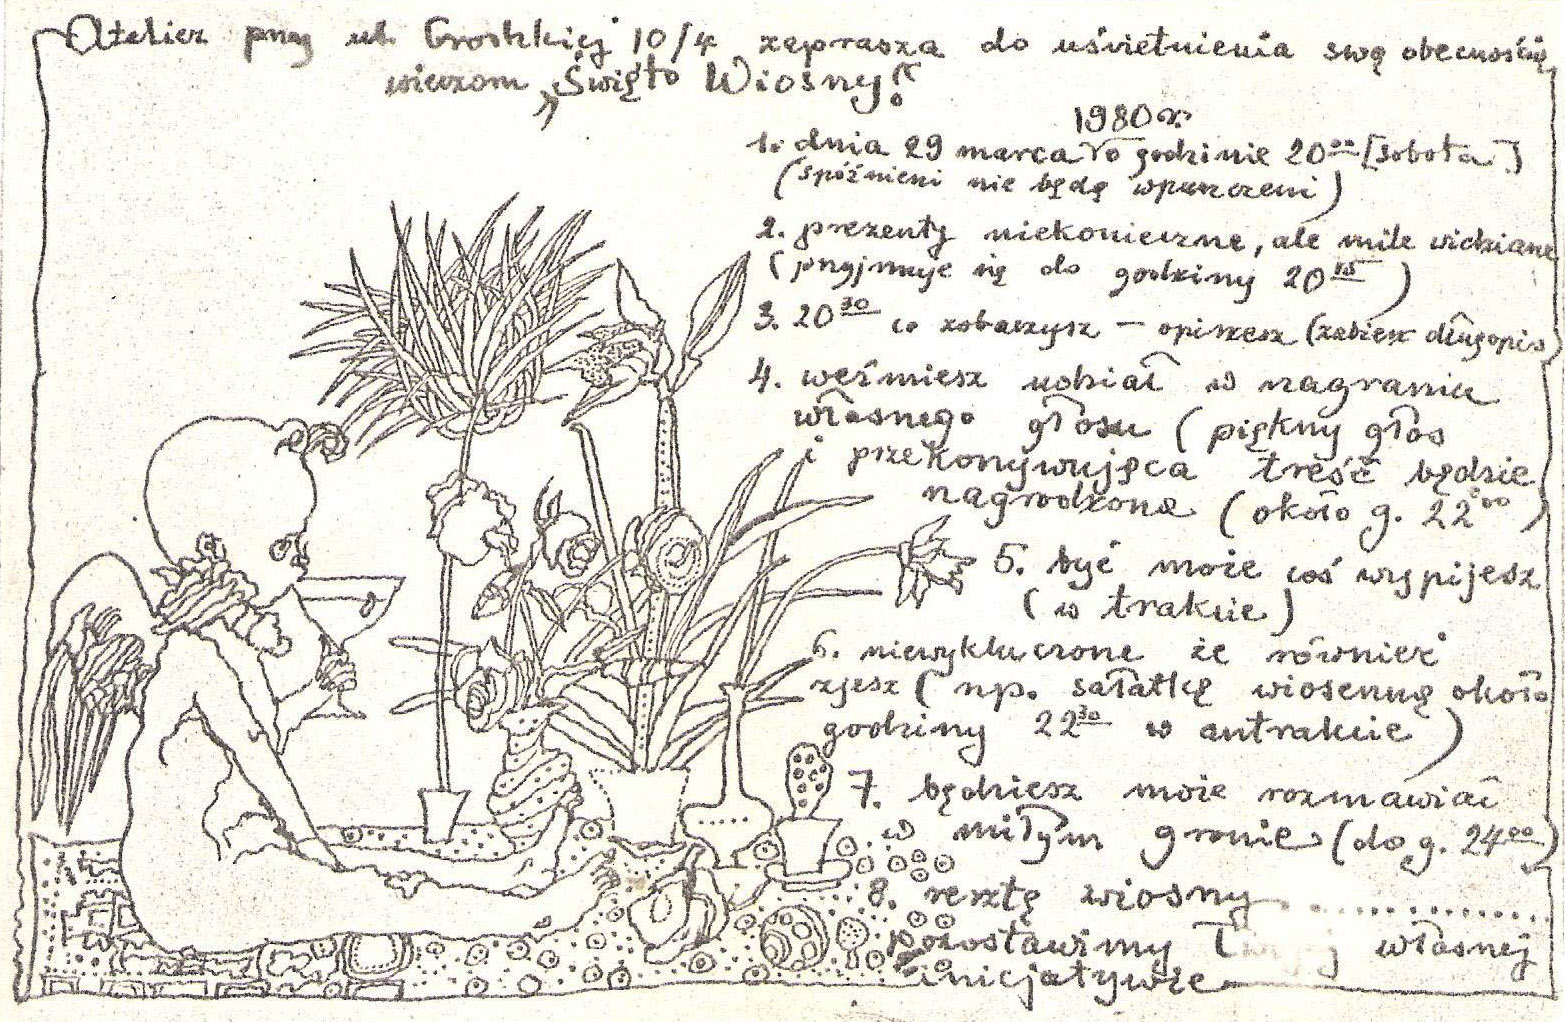 Atelier przy ul. Grodzkiej 10/4 zaprasza do uświetnienia swą obecnością
wieczoru „Święto Wiosny!"
1980 r.
1. dnia 29 marca o godzinie 20⁰⁰ [sobota]
(spóźnieni nie będą wpuszczeni)
2. prezenty niekonieczne, ale mile widziane
(przyjmuje się do godziny 20¹⁵)
3. 20³⁰ co zobaczysz – opiszesz (zabierz długopis)
4. weźmiesz udział w nagraniu
własnego głosu (piękny głos
i przekonywująca treść będzie
nagrodzona (około g. 22⁰⁰)
5. być może coś wypijesz
(w trakcie)
6. niewykluczone że również
zjesz (np. sałatkę wiosenną około
godziny 22³⁰ w antrakcie)
7. będziesz może rozmawiać
w miłym gronie (do g. 24⁰⁰)
8. resztę wiosny ................
pozostawimy Twojej własnej
inicjatywie